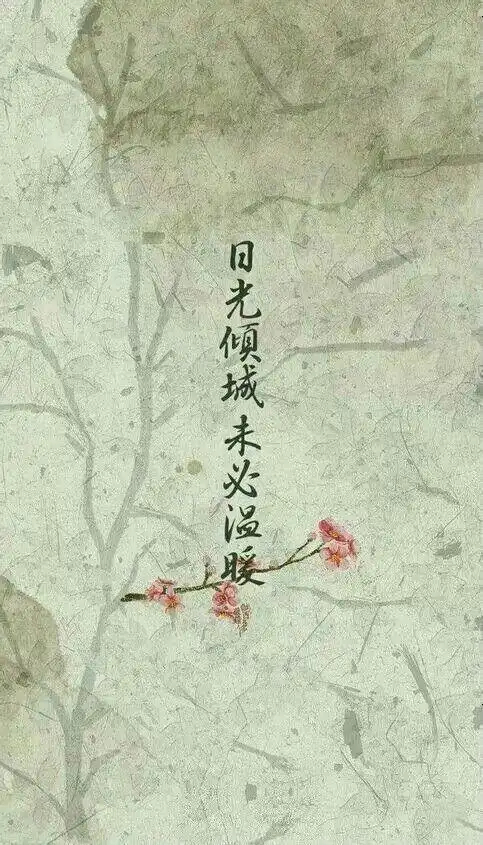 日光倾城未必温暖